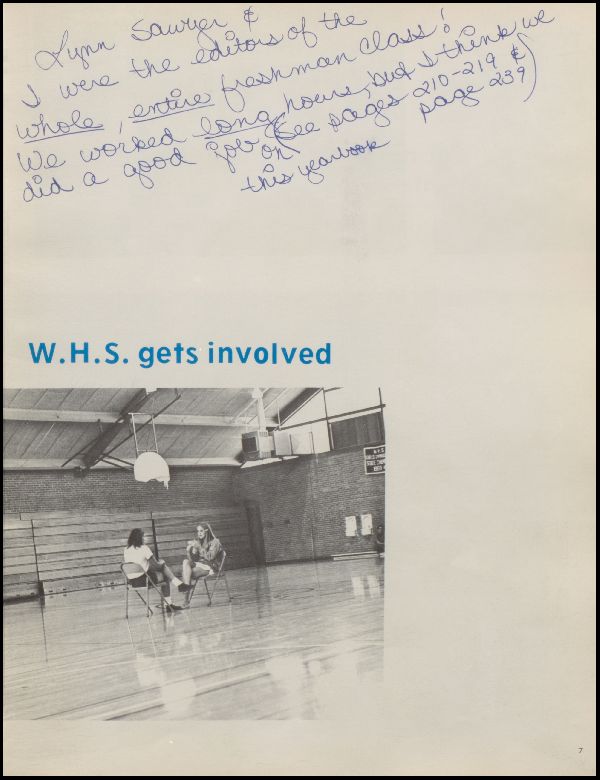 Lynn Sawyer &
I were the editors of the
whole, entire freshman class!
We worked long hours, but I think we
did a good job on (See pages 210-219 &
this yearbook page 239)
W.H.S. gets involved
7